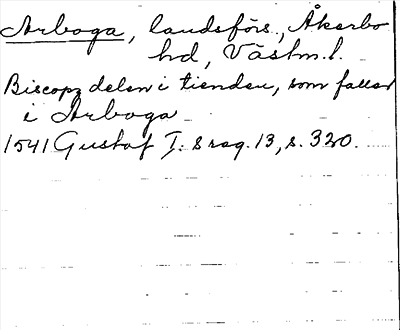 Arboga, landsförs., Åkerbo
hd, Västm.l.
Biscopz delen i tienden, som faller
i Arboga
1541 Gustaf I:s reg. 13, s. 320.